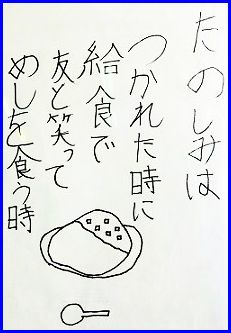 たのしみは
つかれた時に
給食で
友と笑って
めしを食う時